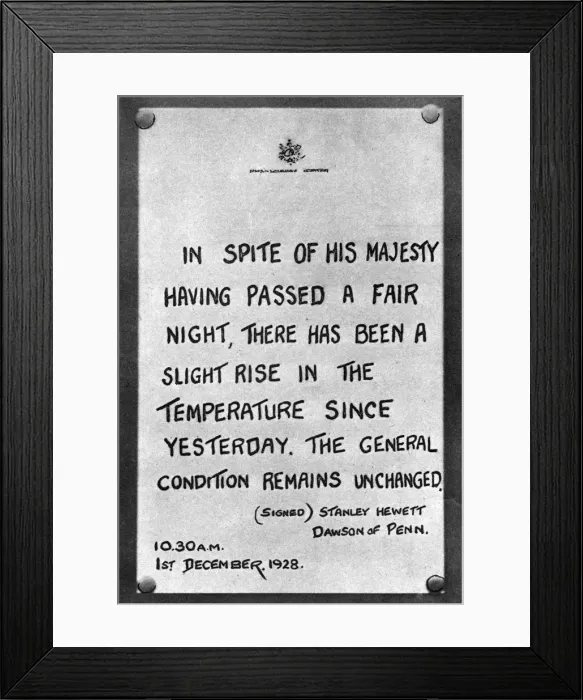 IN SPITE OF HIS MAJESTY
HAVING PASSED A FAIR
NIGHT, THERE HAS BEEN A
SLIGHT RISE IN THE
TEMPERATURE SINCE
YESTERDAY. THE GENERAL
CONDITION REMAINS UNCHANGED.
(SIGNED) STANLEY HEWETT
DAWSON OF PENN.
10.30 A.M.
1ST DECEMBER. 1928.